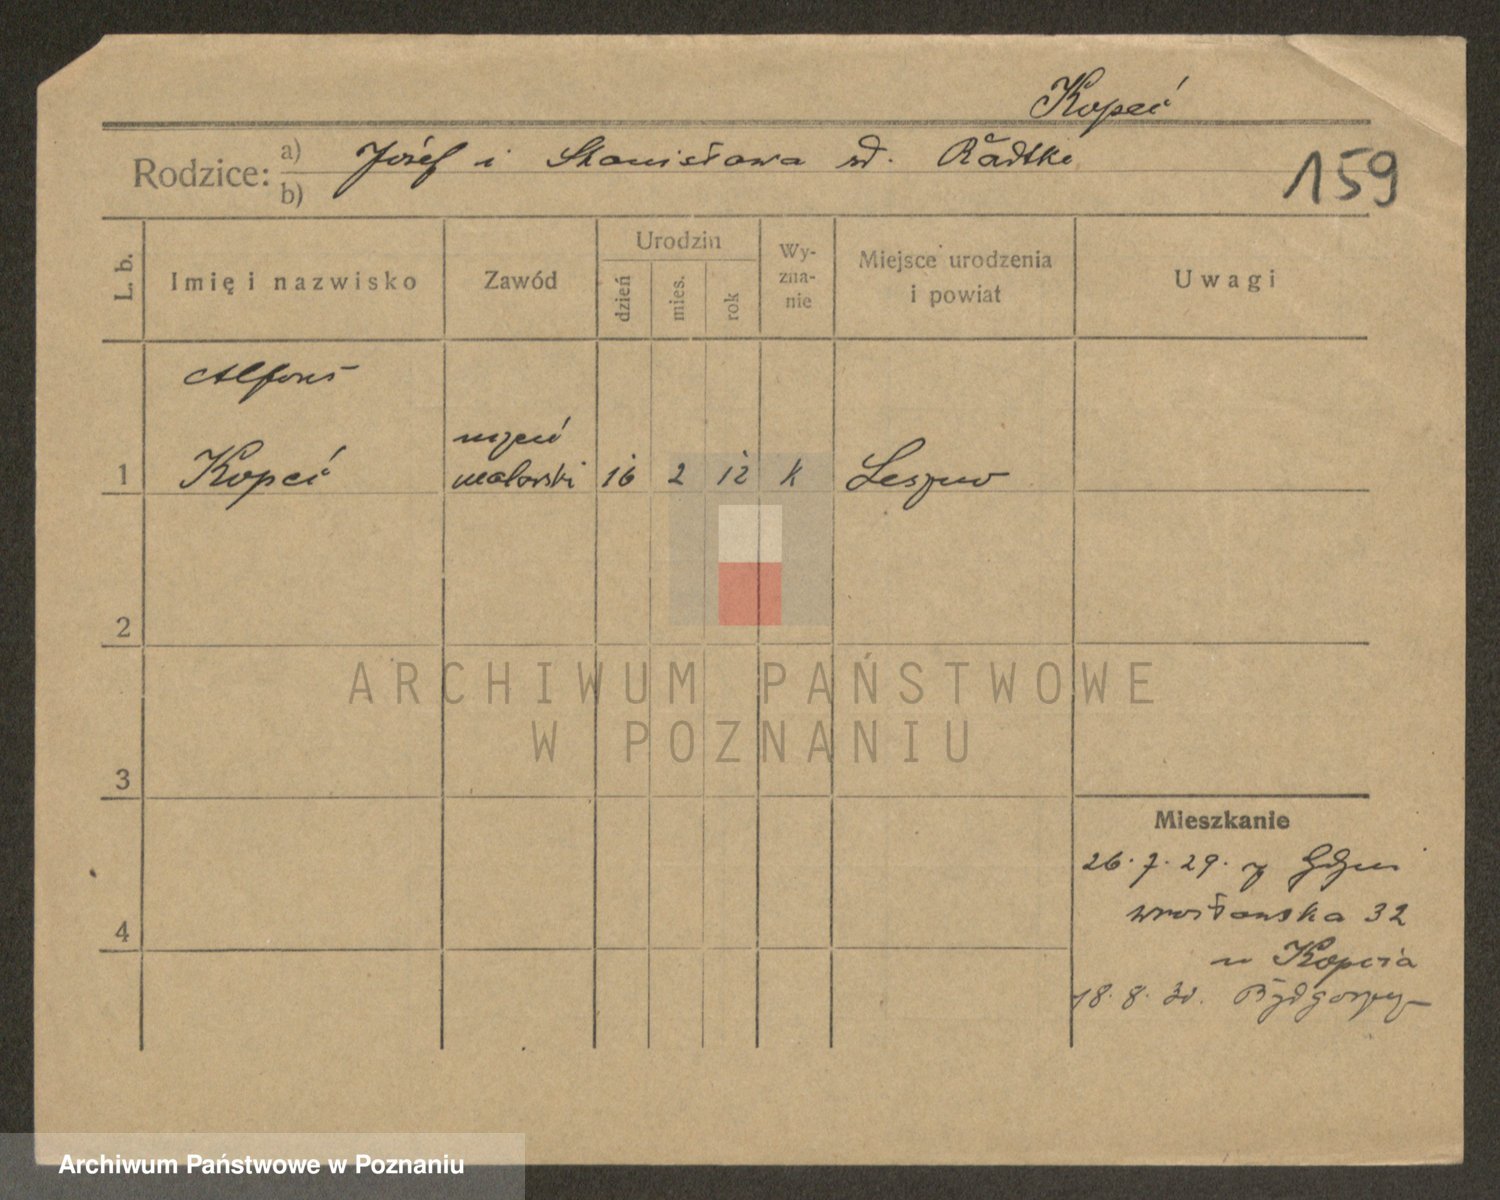 Kopeć
Rodzice: a) Józef i Stanisława zd. Radtke
b)
159
L. b.
Imię i nazwisko
Zawód
Urodzin
dzień
mies.
rok
Wy-
zna-
nie
Miejsce urodzenia
i powiat
Uwagi
Alfons
uczeń
1 Kopeć malarski 16 2 12 K Leszno
2
3
4
ARCHIWUM PAŃSTWOWE
W POZNANIU
Mieszkanie
26.7.29. z Gdyni
Wrocławska 32
u Kopcia
18.8.30. Bydgoszcz
Archiwum Państwowe w Poznaniu